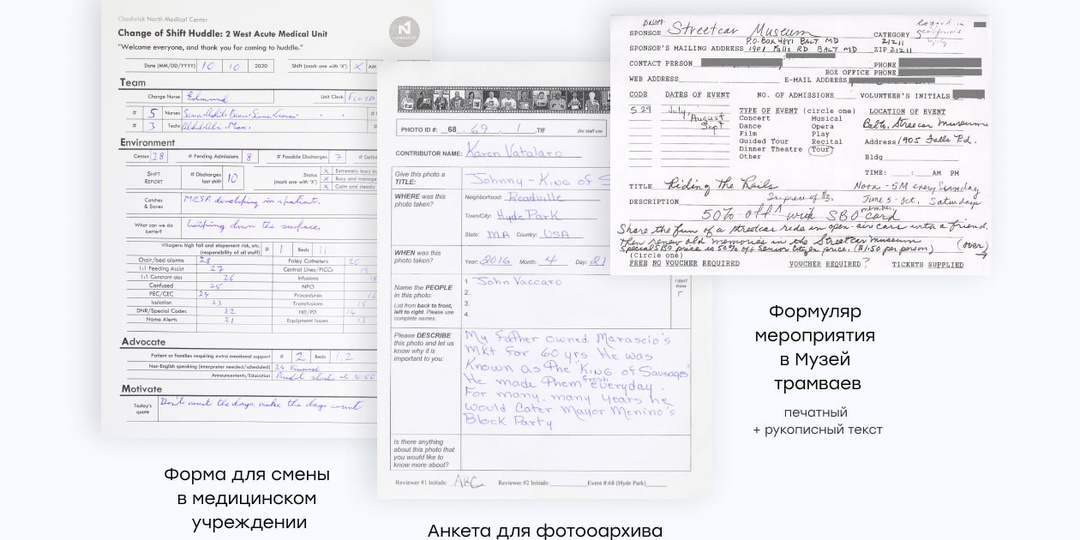 Chadwick North Medical Center
Change of Shift Huddle: 2 West Acute Medical Unit
"Welcome everyone, and thank you for coming to huddle."
Date (MM/DD/YYYY) 10 10 2020 Shift (mark one with 'X') X AM
Team
Charge Nurse Edmund Unit Clerk
# 5 Nurses
# 3 Techs
Environment
Census 18 # Pending Admissions 8 # Possible Discharges 7
SHIFT REPORT # Discharges last shift 10 Status (mark one with 'X') X Extremely busy
X Busy and
X Calm and
Catches & Saves MRSA developing in a patient.
What can we do better? Wiping down the surface.
Villagers high fall and elopement risk, etc. (responsibility of all staff) # 1 Beds 11
Chair/bed alarms 28 Foley Catheters 20
1:1 Feeding Assist 27 Central Lines/PICCs 19
1:1 Constant obs 26 Infusions 18
Confused 25 NPO
PEC/CEC 24 Procedures 16
Isolation 23 Transfusions 15
DNR/Special Codes 22 HD/PD 14
Name Alerts 21 Equipment Issues 13
Advocate
Patient or families requiring extra emotional support # 2 Beds 1, 2
Non-English speaking (interpreter needed/scheduled)
Announcements/Education
Motivate
Today's quote Don't count the days, make the days count
Форма для смены
в медицинском
учреждении
PHOTO ID #: 68 69 1 .TIF (for staff use
CONTRIBUTOR NAME: Karen Vatalaro
Give this photo a TITLE: Johnny - King of S
WHERE was this photo taken? Neighborhood: Readville
Town/City: Hyde Park
State: MA Country: USA
WHEN was this photo taken? Year: 2016 Month: 4 Day: 21
Name the PEOPLE in this photo:
List from back to front, left to right. Please use complete names.
1. John Vaccaro
2.
3.
4.
Please DESCRIBE this photo and let us know why it is important to you:
My Father owned Marascio's
Mkt for 60 yrs He was
Known as the "King of Sausages"
He made them fresh everyday.
For many, many years he
would Cater Mayor Menino's
Block Party
Is there anything about this photo that you would like to know more about?
Reviewer #1 Initials: AKC Reviewer #2 Initials: Event #:68 (Hyde Park)
Анкета для фотоархива
SPONSOR Streetcar Museum CATEGORY
P.O. Box 4881 BALT MD 21211
SPONSOR'S MAILING ADDRESS 1901 Falls RD BALT MD ZIP 21211
CONTACT PERSON PHONE
BOX OFFICE PHONE
WEB ADDRESS E-MAIL ADDRESS
CODE DATES OF EVENT NO. OF ADMISSIONS VOLUNTEER'S INITIALS
S 29 July, August Sept
TYPE OF EVENT (circle one)
Concert Musical
Dance Opera
Film Play
Guided Tour Recital
Dinner Theatre Tour
Other
LOCATION OF EVENT
Balto. Streetcar Museum
Address 1905 Falls Rd.
Bldg
TIME: : AM PM
TITLE Riding The Rails Noon - 5M every Sunday
DESCRIPTION June 5 - Oct. Saturdays
50% off with SBO card
member
Share the fun of a streetcar ride on open-air cars with a friend,
then renew old memories in the Streetcar Museum
Special SBO price is 50% off Senior Citizen price. ($1.50 per person) (over)
(Circle one)
FREE NO VOUCHER REQUIRED VOUCHER REQUIRED? TICKETS SUPPLIED
Формуляр
мероприятия
в Музей
трамваев
печатный
+ рукописный текст